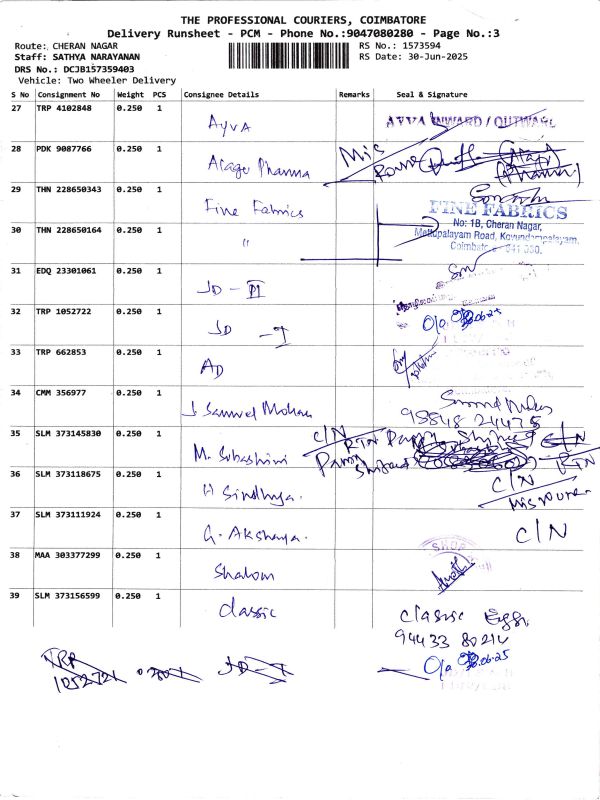 THE PROFESSIONAL COURIERS, COIMBATORE
Delivery Runsheet - PCM - Phone No.:9047080280 - Page No.:3
Route: CHERAN NAGAR
Staff: SATHYA NARAYANAN
DRS No.: DCJB157359403
Vehicle: Two Wheeler Delivery
RS No.: 1573594
RS Date: 30-Jun-2025
S No Consignment No Weight PCS Consignee Details Remarks Seal & Signature
27 TRP 4102848 0.250 1 Ayva AYVA INWARD / OUTWARD
28 PDK 9087766 0.250 1 Alagu Pharma Mis Route
29 THN 228650343 0.250 1 Fine Fabrics
FINE FABRICS
No: 1B, Cheran Nagar,
Mettupalayam Road, Koundampalayam,
30 THN 228650164 0.250 1 "
31 EDQ 23301061 0.250 1 JD - II
32 TRP 1052722 0.250 1 JD - I 30.06.25
33 TRP 662853 0.250 1 AD
34 CMM 356977 0.250 1 J Samuel Mohan
35 SLM 373145830 0.250 1 M. Subashini C/N RTN
36 SLM 373118675 0.250 1 H Sindhya. C/N
Misroute
37 SLM 373111924 0.250 1 G. Akshaya. C/N
38 MAA 303377299 0.250 1 Shalom SHOP
39 SLM 373156599 0.250 1 classic classic Eggs
TRP
1052721 JD - I 30.06.25